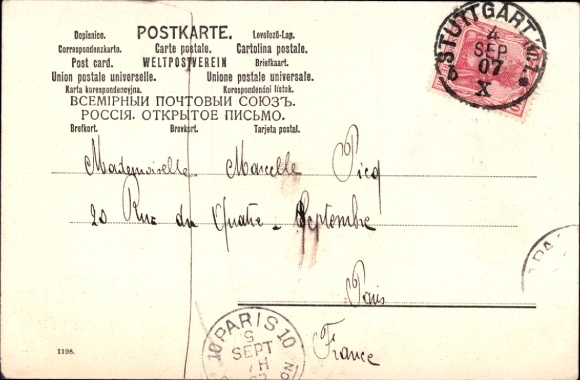 Dopisnice. POSTKARTE. Levelező-Lap.
Correspondenzkarte. Carte postale. Cartolina postale.
Post card. WELTPOSTVEREIN Briefkaart.
Union postale universelle. Unione postale universale.
Karta korespondencyjna. Korespondenčni listok.
ВСЕМІРНЫЙ ПОЧТОВЫЙ СОЮЗЪ.
РОССІЯ. ОТКРЫТОЕ ПИСЬМО.
Brefkort. Brevkort. Tarjeta postal.
STUTTGART
4
SEP
07
X
b
Mademoiselle Marcelle Picq
20 Rue du Quatre-Septembre
Paris
France
10 PARIS 10
SEPT
1198.